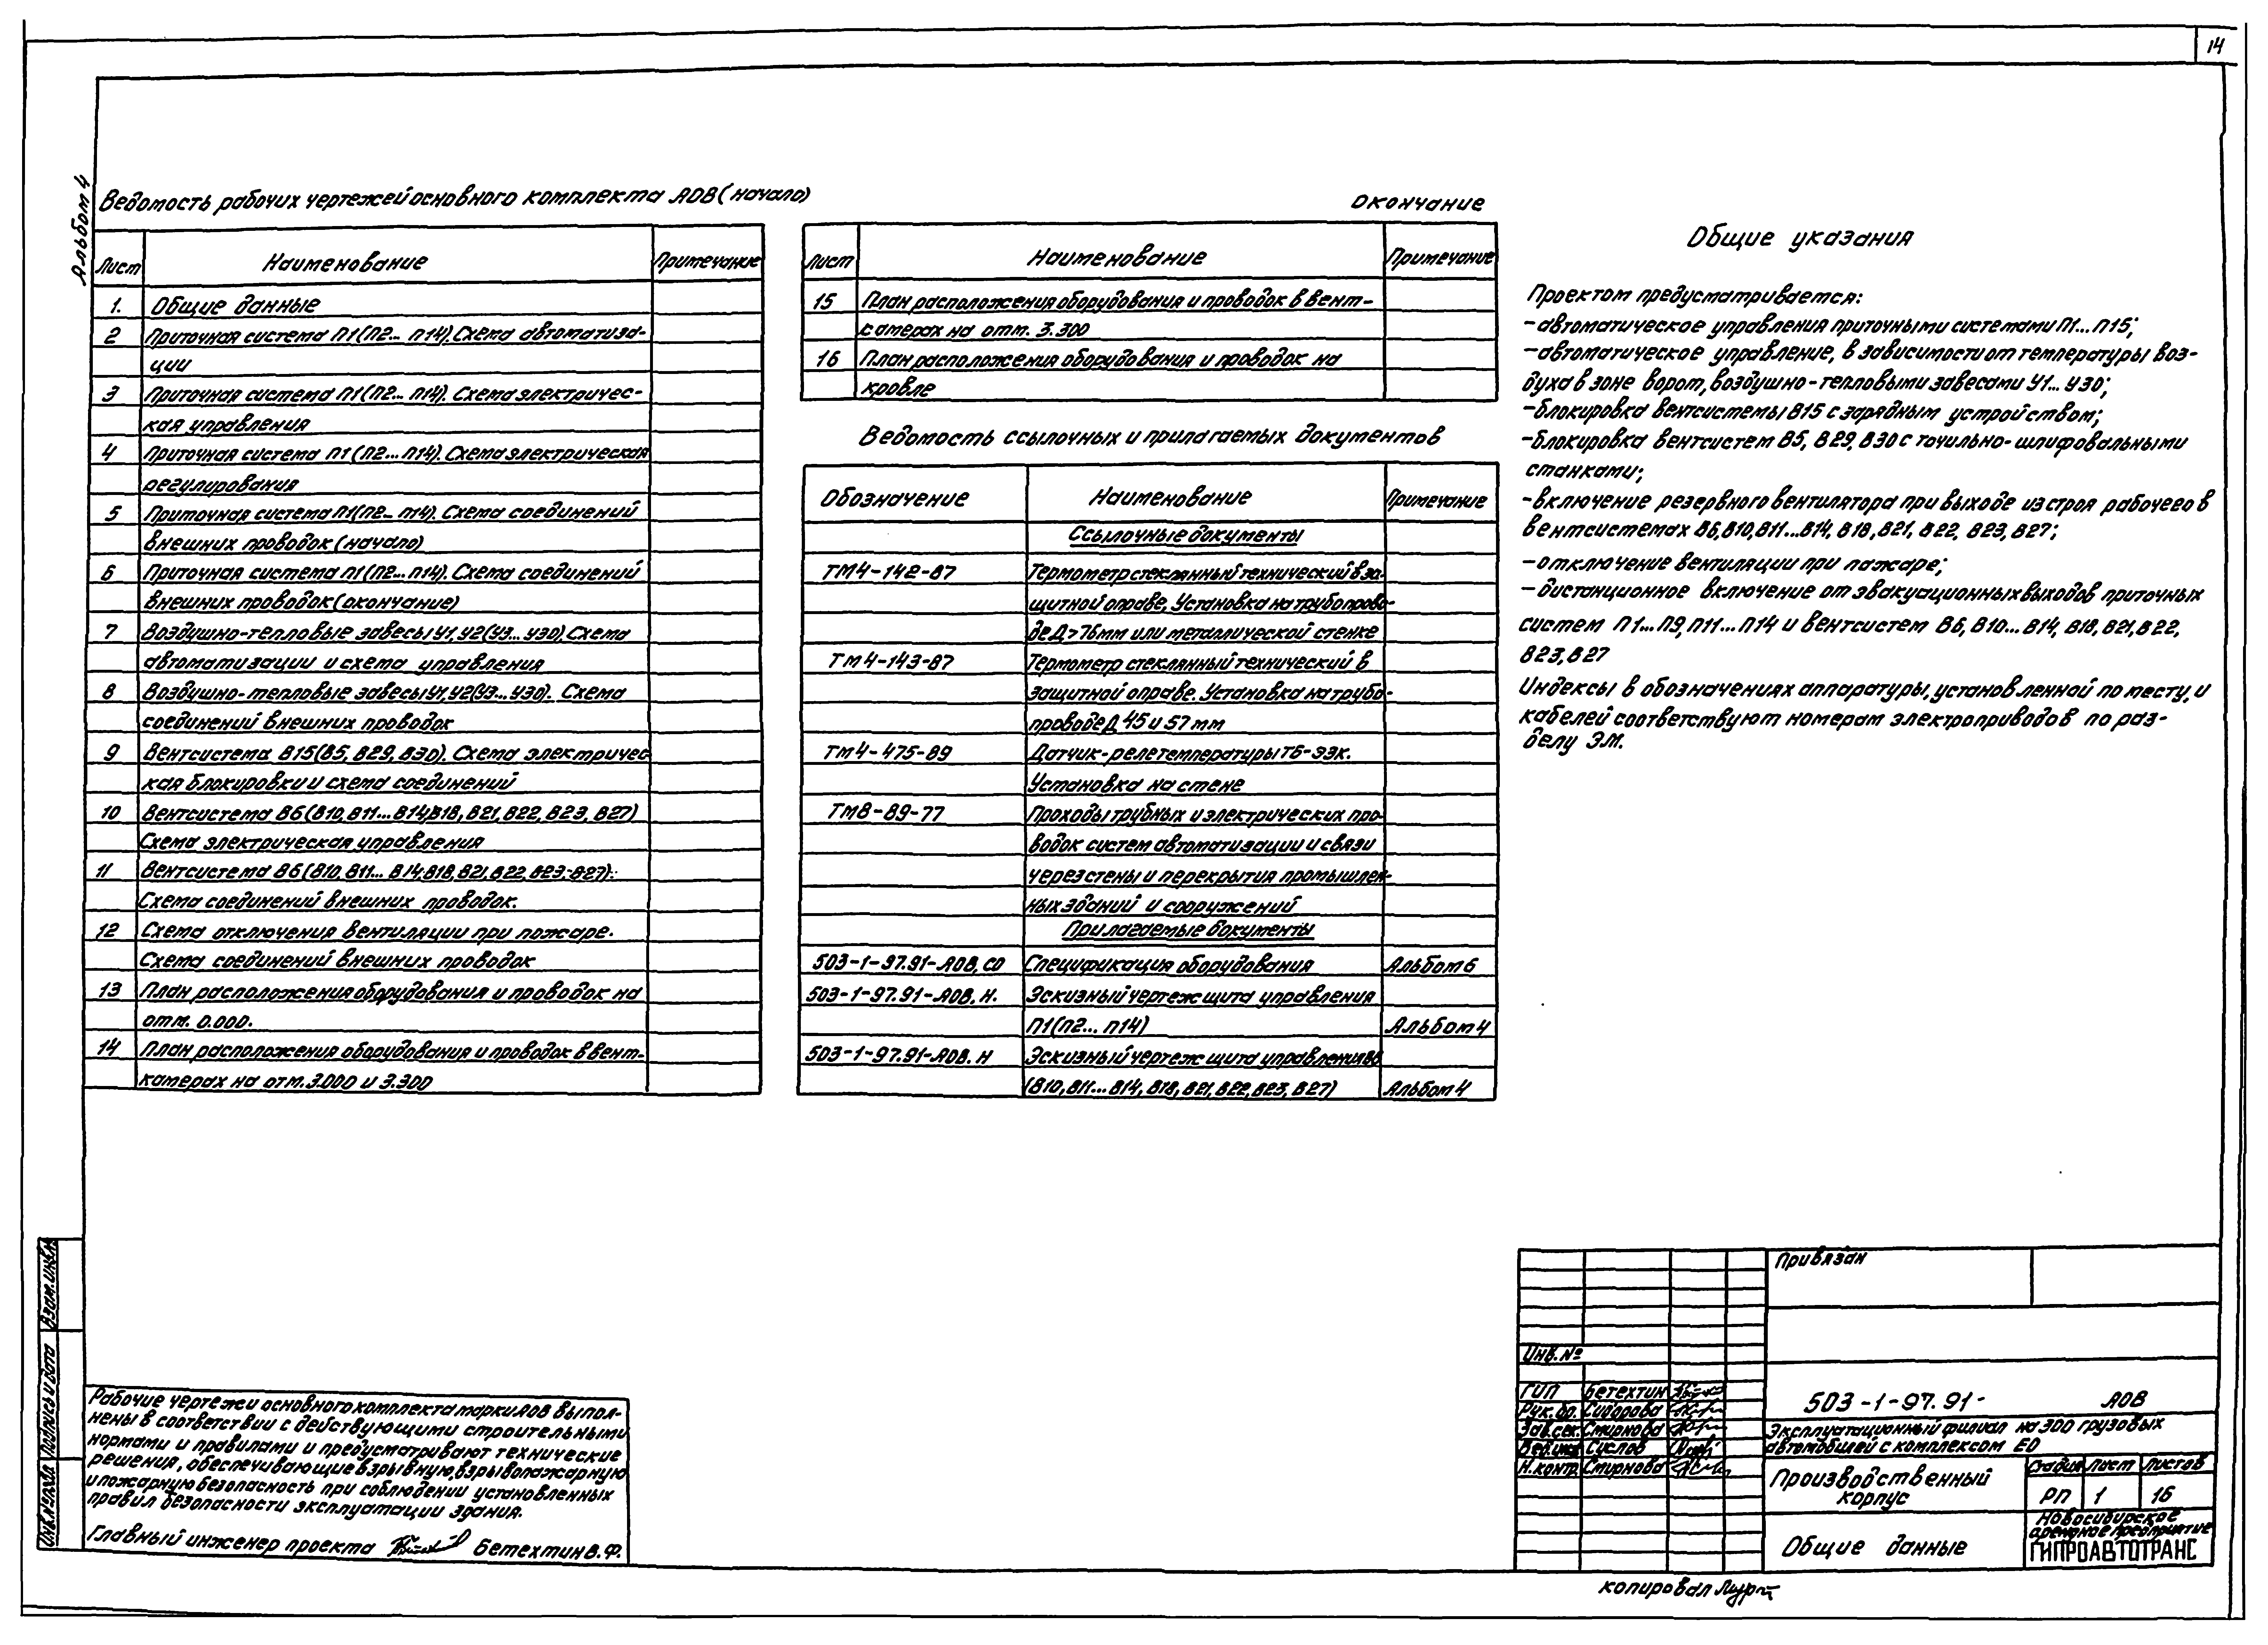 14
Альбом 4
Ведомость рабочих чертежей основного комплекта АОВ (начало)
Лист Наименование Примечание
1. Общие данные
2 Приточная система П1 (П2... П14). Схема автоматиза-
ции
3 Приточная система П1 (П2... П14). Схема электричес-
кая управления
4 Приточная система П1 (П2... П14). Схема электрическая
регулирования
5 Приточная система П1 (П2... П14). Схема соединений
внешних проводок (начало)
6 Приточная система П1 (П2... П14). Схема соединений
внешних проводок (окончание)
7 Воздушно-тепловые завесы У1, У2 (У3... У30). Схема
автоматизации и схема управления
8 Воздушно-тепловые завесы У1, У2 (У3... У30). Схема
соединений внешних проводок
9 Вентсистема В15 (В5, В29, В30). Схема электричес-
кая блокировки и схема соединений
10 Вентсистема В6 (В10, В11... В14, В18, В21, В22, В23, В27)
Схема электрическая управления
11 Вентсистема В6 (В10, В11... В14, В18, В21, В22, В23, В27).
Схема соединений внешних проводок.
12 Схема отключения вентиляции при пожаре.
Схема соединений внешних проводок
13 План расположения оборудования и проводок на
отм. 0.000.
14 План расположения оборудования и проводок в вент-
камерах на отм. 3.000 и 3.300
Окончание
Лист Наименование Примечание
15 План расположения оборудования и проводок в вент-
камерах на отм. 3.300
16 План расположения оборудования и проводок на
кровле
Ведомость ссылочных и прилагаемых документов
Обозначение Наименование Примечание
Ссылочные документы
ТМ4-142-87 Термометр стеклянный технический в за-
щитной оправе. Установка на трубопрово-
де Д > 76 мм или металлической стенке
ТМ4-143-87 Термометр стеклянный технический в
защитной оправе. Установка на трубо-
проводе Д 45 и 57 мм
ТМ4-475-89 Датчик-реле температуры ТБ-ЭЗК.
Установка на стене
ТМ8-89-77 Проходы трубных и электрических про-
водок систем автоматизации и связи
через стены и перекрытия промышлен-
ных зданий и сооружений
Прилагаемые документы
503-1-97.91-АОВ.СО Спецификация оборудования Альбом 6
503-1-97.91-АОВ.Н. Эскизный чертеж щита управления
П1 (П2... П14) Альбом 4
503-1-97.91-АОВ.Н Эскизный чертеж щита управления В6
(В10, В11... В14, В18, В21, В22, В23, В27) Альбом 4
Общие указания
Проектом предусматривается:
- автоматическое управления приточными системами П1... П15;
- автоматическое управление, в зависимости от температуры воз-
духа в зоне ворот, воздушно-тепловыми завесами У1... У30;
- блокировка вентсистемы В15 с зарядным устройством;
- блокировка вентсистем В5, В29, В30 с точильно-шлифовальными
станками;
- включение резервного вентилятора при выходе из строя рабочего в
вентсистемах В6, В10, В11... В14, В18, В21, В22, В23, В27;
- отключение вентиляции при пажаре;
- дистанционное включение от эвакуационных выходов приточных
систем П1... П9, П11... П14 и вентсистем В6, В10... В14, В18, В21, В22,
В23, В27
Индексы в обозначениях аппаратуры, установленной по месту, и
кабелей соответствуют номерам электроприводов по раз-
делу ЭМ.
Взам. инв.№
Подпись и дата
Инв.№ подл.
Рабочие чертежи основного комплекта марки АОВ выпол-
нены в соответствии с действующими строительными
нормами и правилами и предусматривают технические
решения, обеспечивающие взрывную, взрывопожарную
и пожарную безопасность при соблюдении установленных
правил безопасности эксплуатации здания.
Главный инженер проекта Бетехтин В.Ф.
Привязан
Инв.№
ГИП Бетехтин
Рук.бр. Сидорова
Зав.сек. Смирнова
Вед.инж. Суслов
Н.контр. Смирнова
503-1-97.91- АОВ
Эксплуатационный филиал на 300 грузовых
автомобилей с комплексом ЕО
Производственный
корпус
Стадия Лист Листов
РП 1 16
Общие данные
Новосибирское
арендное предприятие
ГИПРОАВТОТРАНС
копировал